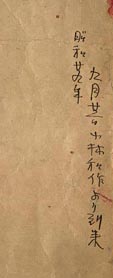 昭和廿九年
九月廿日小林和作より到来